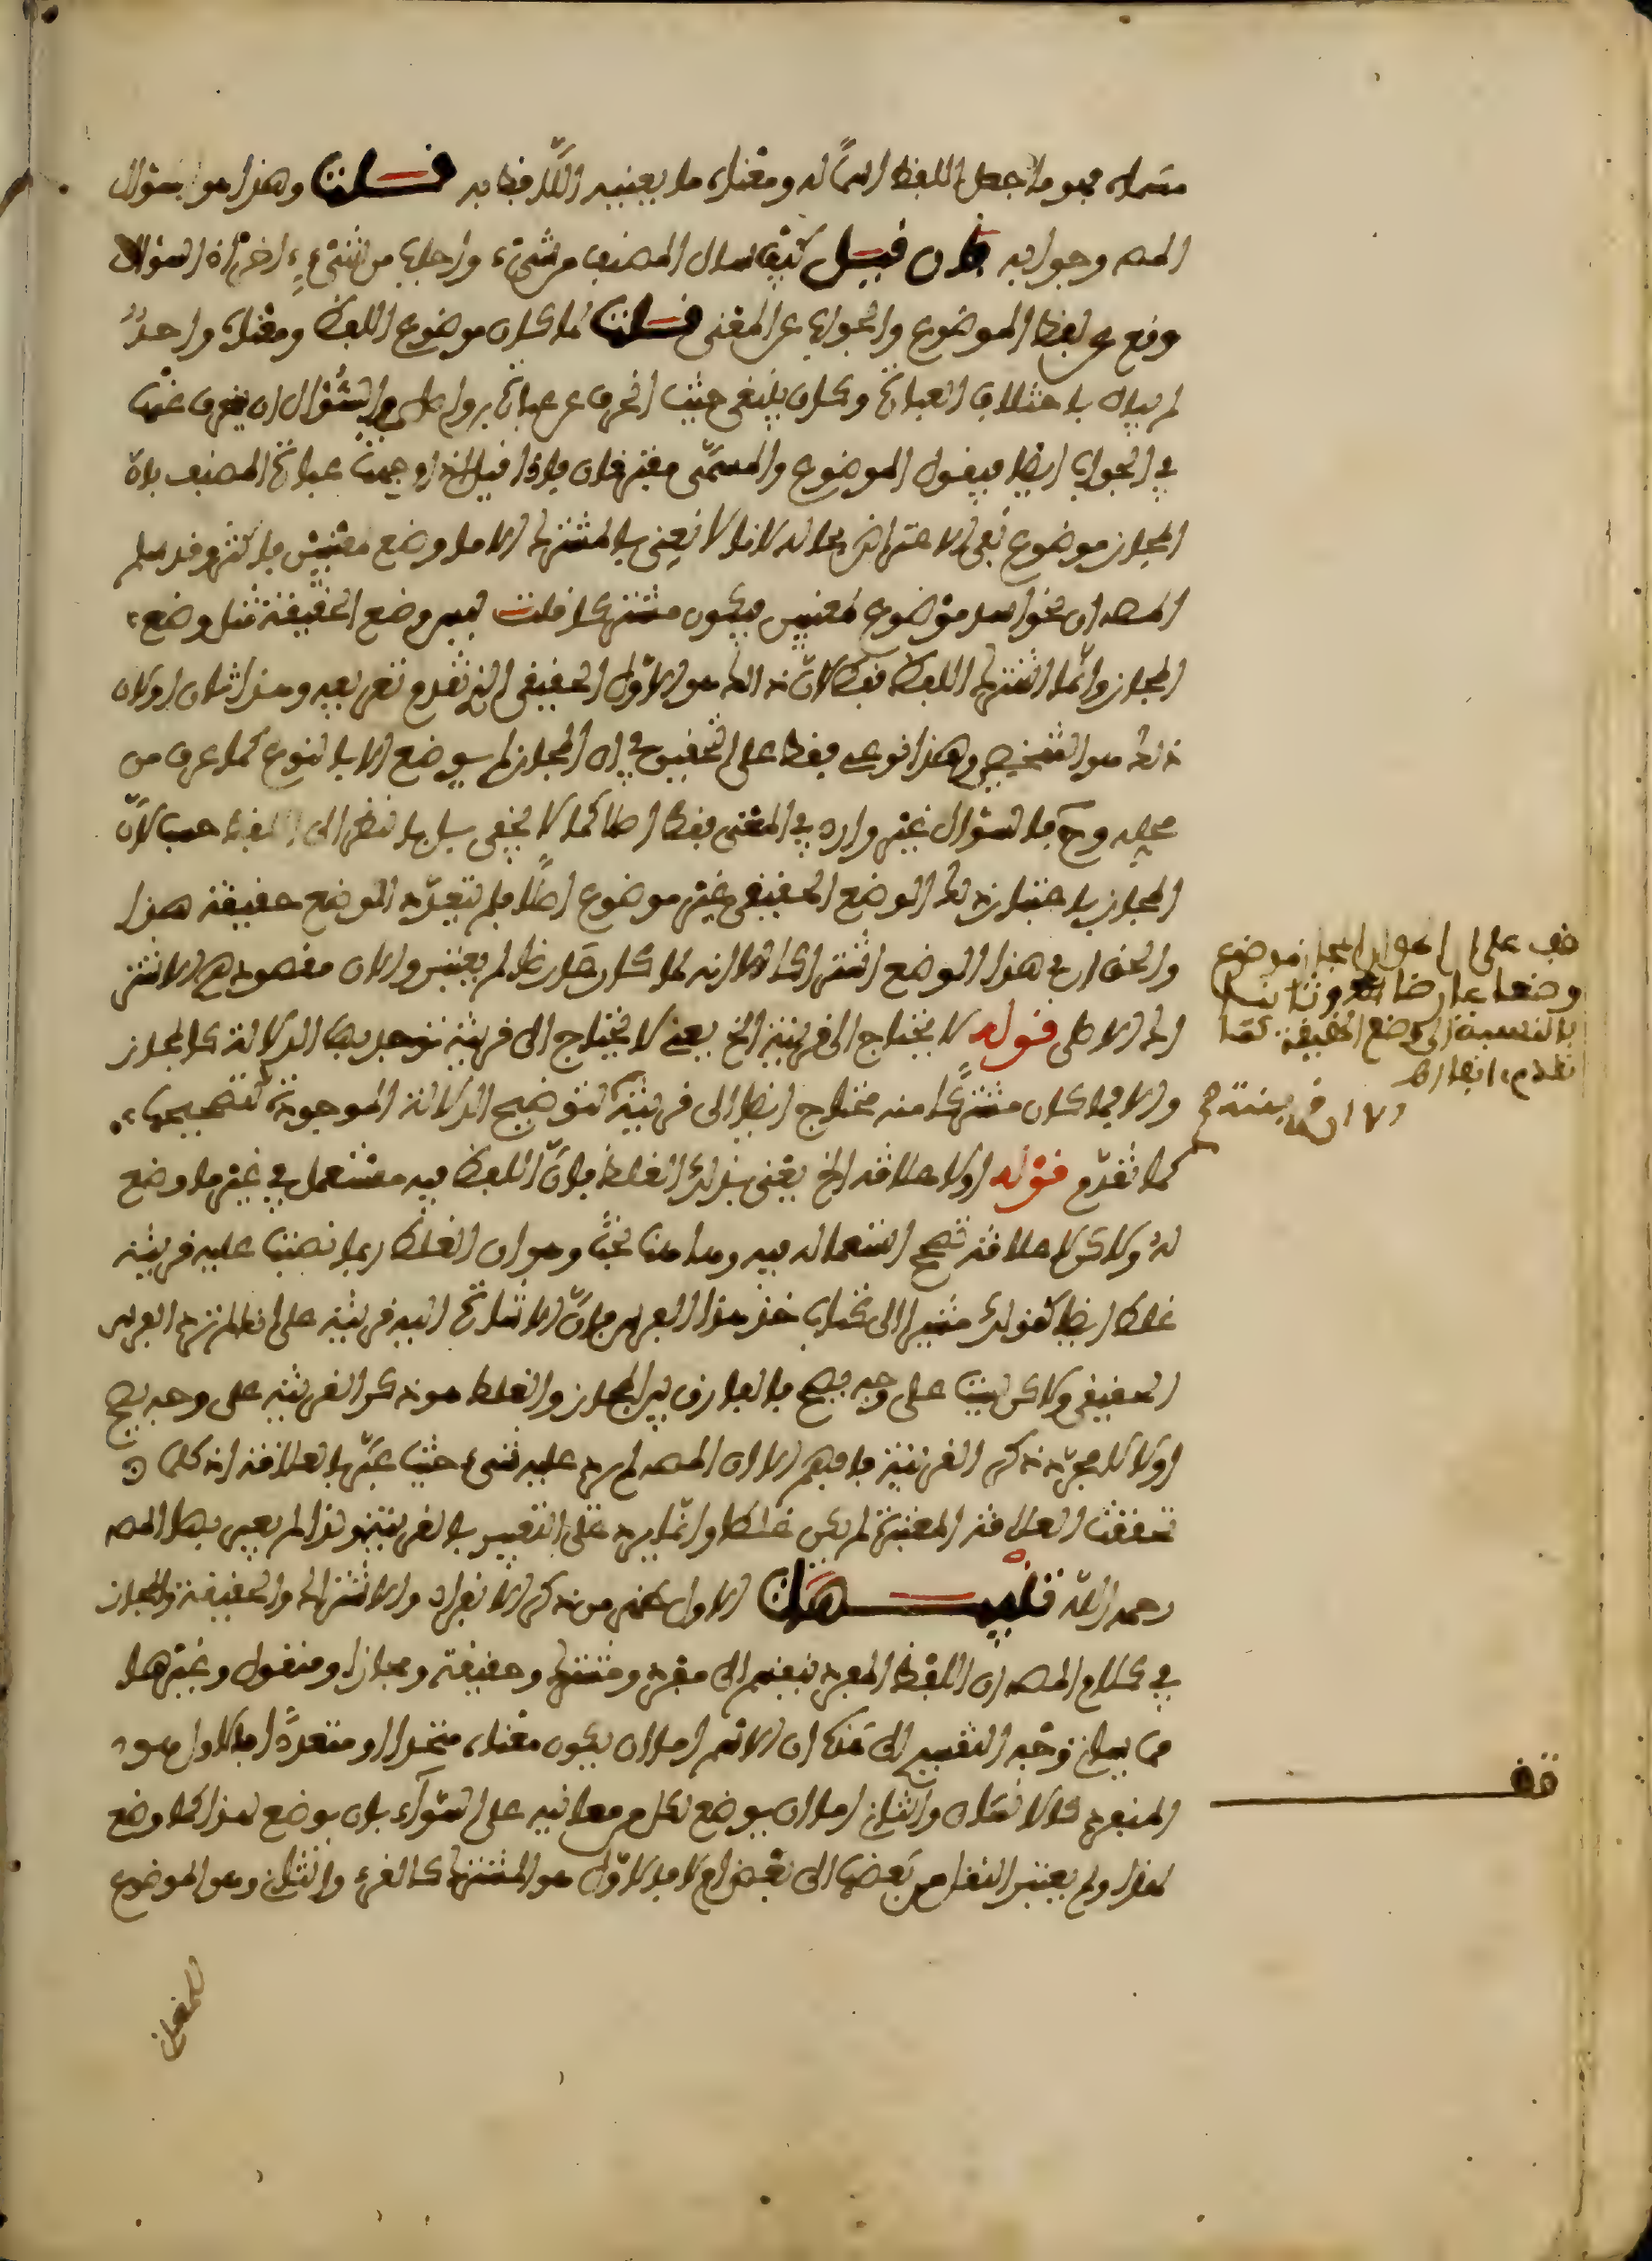 مسماه فهو ما جعل اللفظ اسمًا له ومعناه ما يعنيه اللَّافظ به قلت وهذا هو سؤال
المص وجوابه فإن قيل كيف سأل المصنف من شيء وأجاب من شيء آخر إذ السؤال
وقع عن لفظ الموضوع والجواب عن المعنى قلت لما كان موضوع اللفظ ومعناه واحدٌ
لم يبال باختلاف العبارة وكان ينبغي حيث انحرف عن عبارة في السُّؤال ان ينحرف عنها
في الجواب ايضا فيقول الموضوع والمسمَّى فإذا قيل عبارة المصنف بأن
المجاز موضوع بقي الاعتراض بحاله لانا لا نعني بالمشترك الا ما وضع لمعنيين فأكثر وقد سلم
المص ان نحو اسد موضوع لمعنيين فيكون مشتركا قلت ليس وضع الحقيقة مثل وضع
المجاز وإنَّما اشترك اللفظ فقط لأنّ ذلك هو الاوّل الحقيقي الذي تقدم تعريفه وهذا ثان او لان
ذلك هو الشخصي وهذا نوعي فقط على التحقيق في ان المجاز لم يوضع الا بالنوع كما عرف من
محله وح فالسؤال غير وارد في المعنى فقط اصلا كما لا يخفى بل بالنظر الى اللفظ حسب لأنّ
المجاز باعتبار ذلك الوضع الحقيقي غير موضوع اصلًا فلم يتعدّد الوضع حقيقة هذا
والحق ان في هذا الوضع اشتراكا الا انه لما كان عارضا لم يعتبر والان مقصودهم الاشتر
اك الاصلي قوله لا يحتاج الى قرينة الخ يعني لا يحتاج الى قرينة توجد بها الدلالة كالمجاز
والا فما كان مشتركًا منه محتاج ايضا الى قرينة لتوضيح الدلالة الموجودة لتصحيحها
كما تقدّم قوله اولا علاقة الخ يعني بذلك الغلط فإنّ اللفظ فيه مستعمل في غير ما وضع
له ولاكن لا علاقة تصحح استعماله فيه وها هنا بحث وهو ان الغلط ربما نصبت عليه قرينة
غلطا ايضا كقولك مشيرا الى كتاب خذ هذا الفرس فإنّ الاشارة اليه قرينة على انه لم يرد الفرس
الحقيقي ولاكن ليست على وجه يصح فالفارق بين المجاز والغلط هو ذكر القرينة على وجه يصح
اولا لا مجرّد ذكر القرينة فافهم الا ان المص لم يرد عليه شيء حيث عبَّر بالعلاقة اذ كلما
تحققت العلاقة المعتبرة لم يكن غلطا وانما يرد على التعبير بالقرينة ولذا لم يعبر بها المص
رحمه الله تنبيهات الاول علم من ذكر الانفراد والاشتراك والحقيقة والمجاز
في كلام المص ان اللفظ المفرد ينقسم الى مفرد ومشترك وحقيقة ومجاز ومنقول وغيرها
بيان وجه التقسيم الى هذا ان الاسم اما ان يكون معناه متحدا او متعددًا فالاول هو
المنفرد كالانسان والثاني اما ان يوضع لكل من معانيه على السّواء بان يوضع لهذا كما وضع
لهذا ولم يعتبر النقل من بعضها الى بعض ام لا فالاوّل هو المشترك كالقرء والثاني وهو الموضوع
للمعاني
قف على ان المجاز موضوع
وضعا عارضا وثانيا
بالنسبة الى وضع الحقيقة كما
تقدم انفا
قف